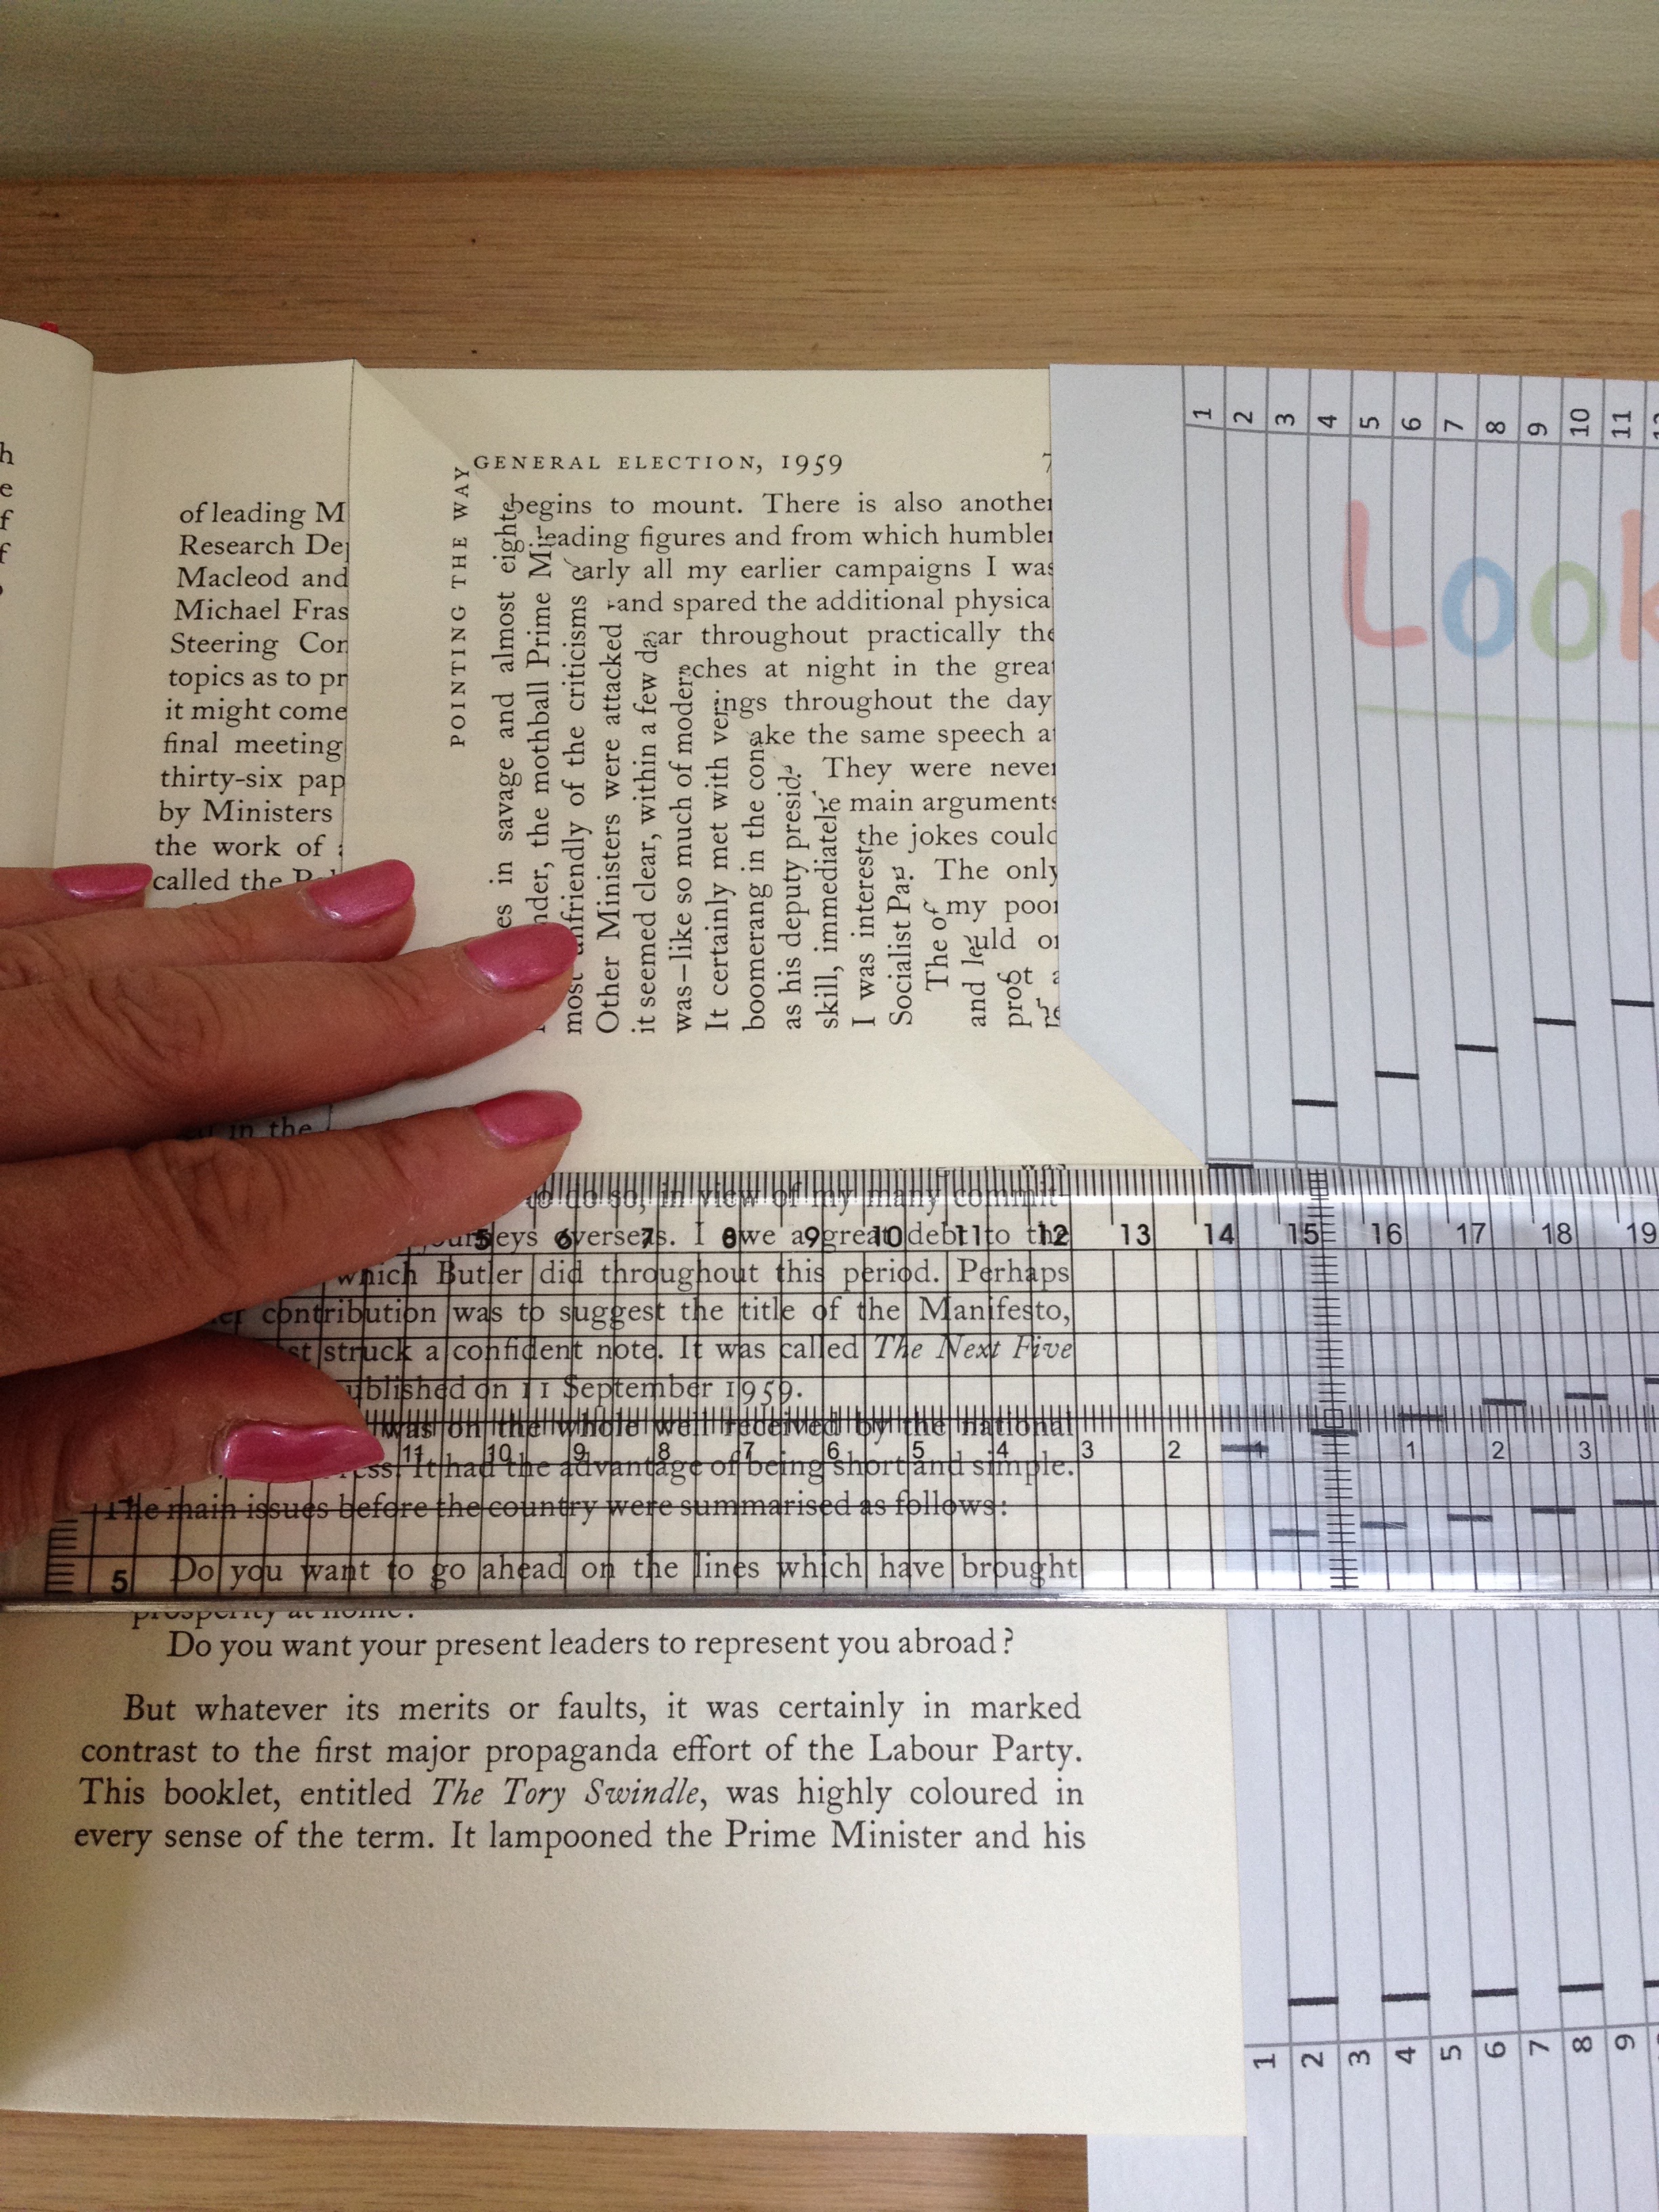 of leading M
Research De
Macleod and
Michael Fras
Steering Con
topics as to pr
it might come
final meeting
thirty-six pap
by Ministers
the work of
called the
in the
GENERAL ELECTION, 1959
begins to mount. There is also another
leading figures and from which humbler
early all my earlier campaigns I was
and spared the additional physica
ar throughout practically the
eches at night in the grea
ings throughout the day
ake the same speech a
They were never
e main arguments
the jokes could
The only
my poor
uld or
t a
POINTING THE WAY
es in savage and almost eighte
nder, the mothball Prime Mi
most unfriendly of the criticisms
Other Ministers were attacked
it seemed clear, within a few da
was—like so much of moder
It certainly met with ver
boomerang in the cons
as his deputy presid
skill, immediatel
I was interest
Socialist Pa
The of
and le
prof
1
2
3
4
5
6
7
8
9
10
11
12
Look
to do so, in view of my many commit-
journeys overseas. I owe a great debt to the
which Butler did throughout this period. Perhaps
contribution was to suggest the title of the Manifesto,
st struck a confident note. It was called The Next Five
ublished on 11 September 1959.
was on the whole well received by the national
ress. It had the advantage of being short and simple.
The main issues before the country were summarised as follows:
Do you want to go ahead on the lines which have brought
prosperity at home?
Do you want your present leaders to represent you abroad?
But whatever its merits or faults, it was certainly in marked
contrast to the first major propaganda effort of the Labour Party.
This booklet, entitled The Tory Swindle, was highly coloured in
every sense of the term. It lampooned the Prime Minister and his
5 6 7 8 9 10 11 12 13 14 15 16 17 18 19
11 10 9 8 7 6 5 4 3 2 1 1 2 3
5
1
2
3
4
5
6
7
8
9